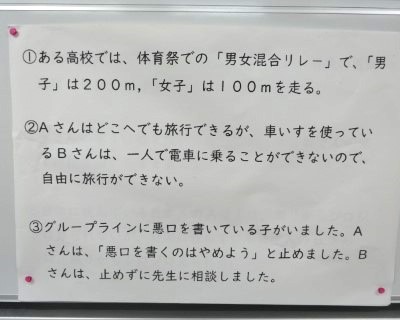 ①ある高校では、体育祭での「男女混合リレー」で、「男
子」は２００ｍ，「女子」は１００ｍを走る。
②Ａさんはどこへでも旅行できるが、車いすを使ってい
るＢさんは、一人で電車に乗ることができないので、
自由に旅行ができない。
③グループラインに悪口を書いている子がいました。Ａ
さんは、「悪口を書くのはやめよう」と止めました。Ｂ
さんは、止めずに先生に相談しました。